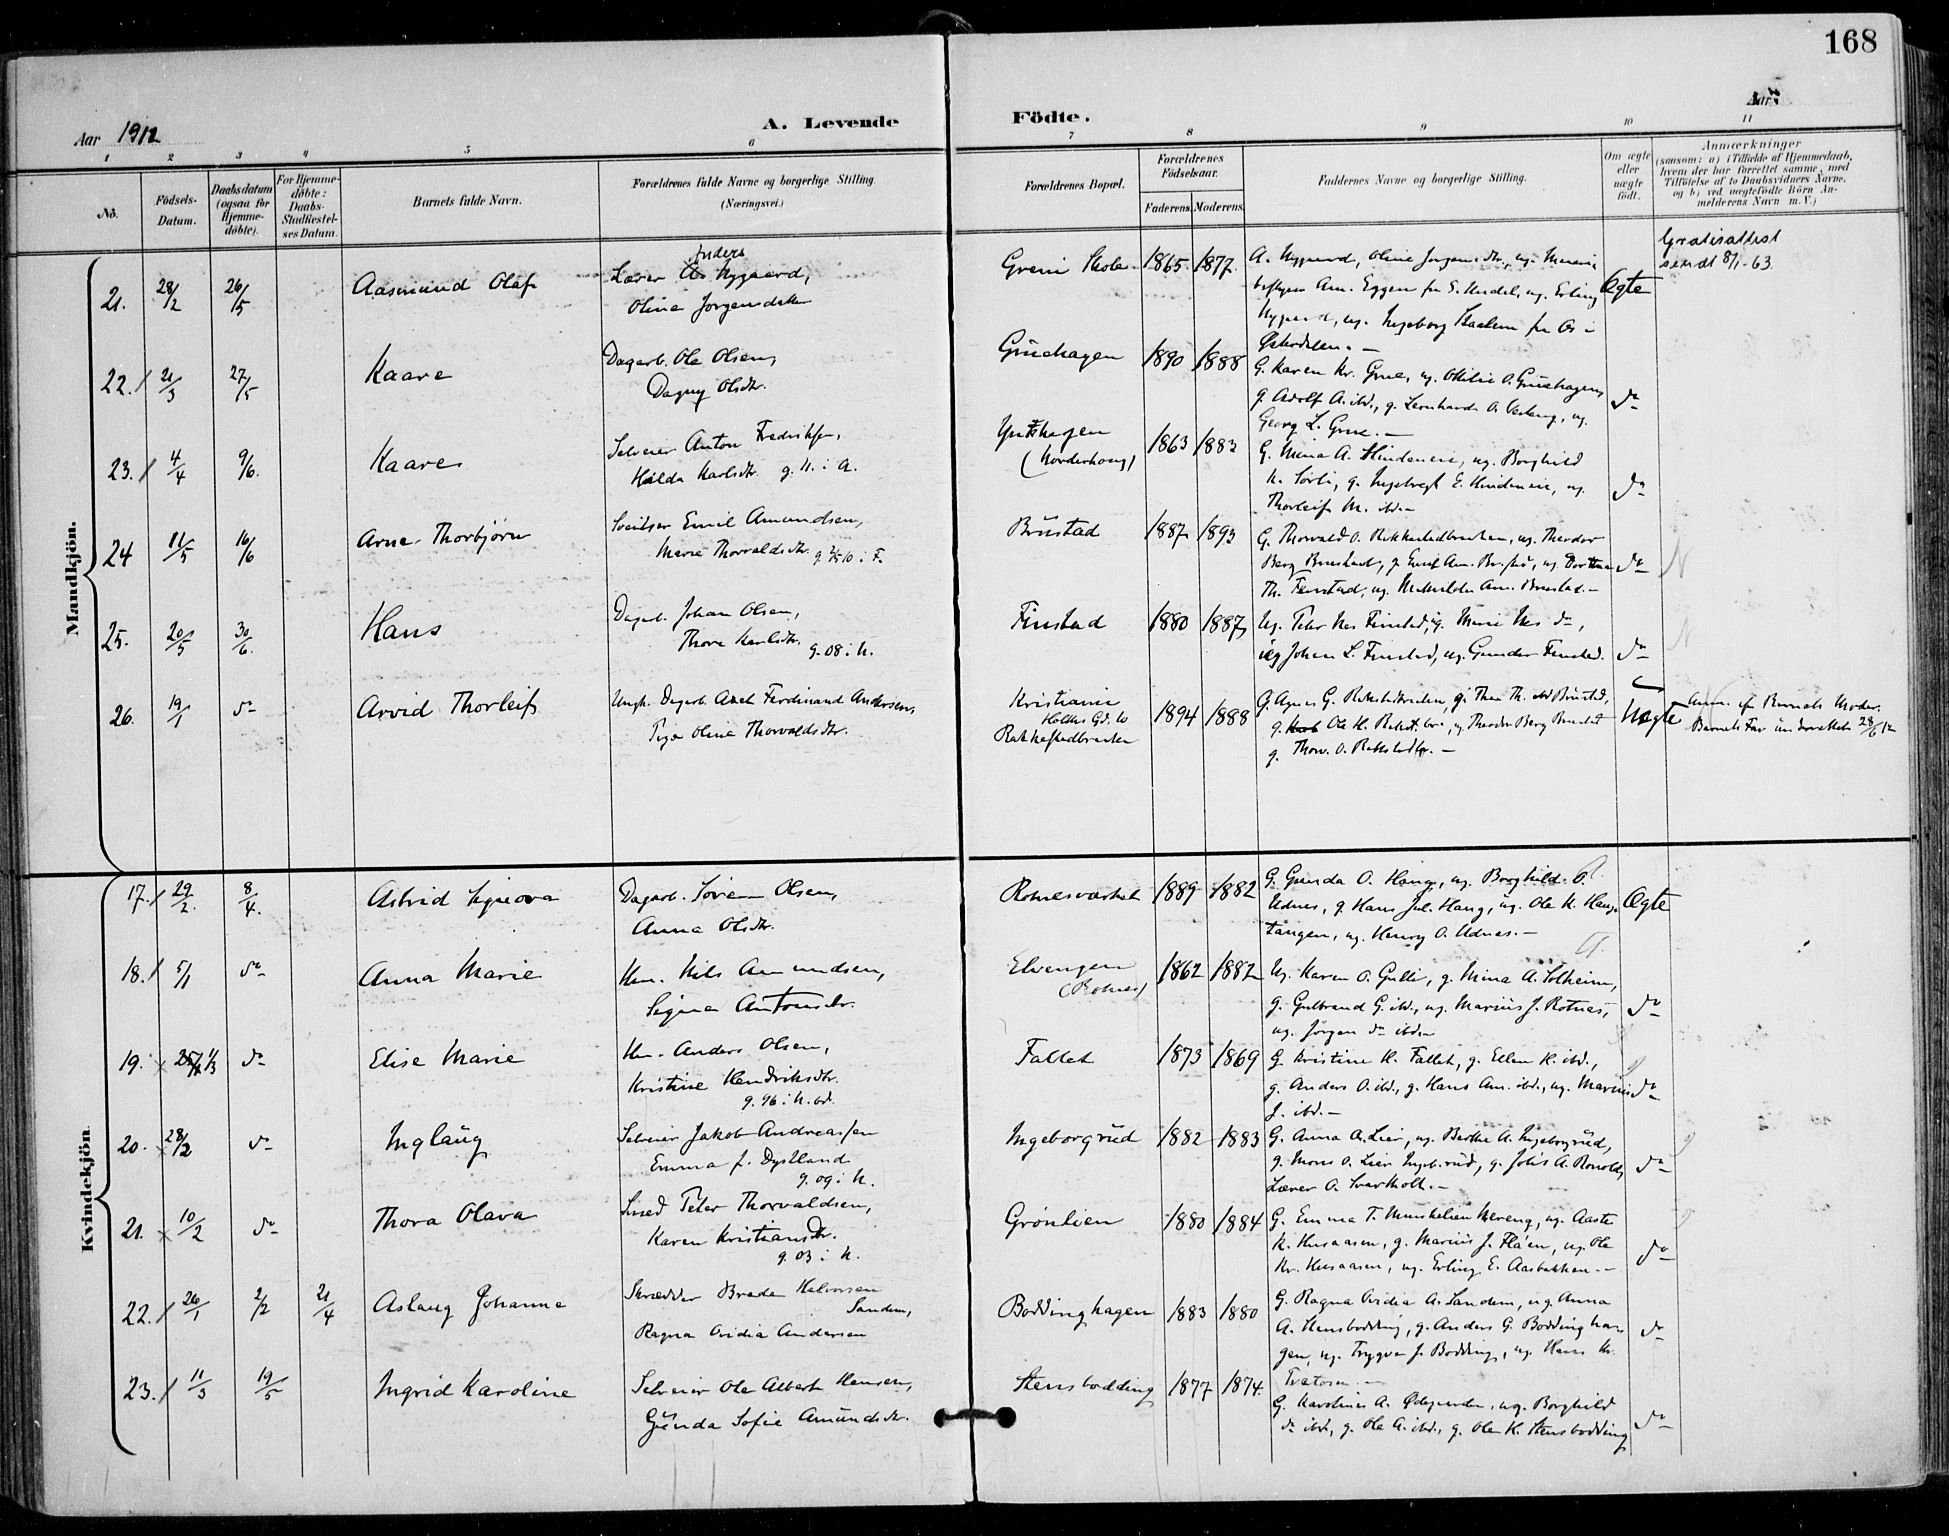 168
Aar 1912
A. Levende Födte.
Aar
1 2 3 4 5 6 7 8 9 10 11
No.
Födsels-Datum.
Daabsdatum (ogsaa for Hjemme-döbte).
For Hjemme-döbte: Daabs-Stadfæstel-ses Datum.
Barnets fulde Navn.
Forældrenes fulde Navne og borgerlige Stilling. (Næringsvei.)
Forældrenes Bopæl.
Forældrenes Födselsaar.
Faderens. Moderens.
Faddernes Navne og borgerlige Stilling.
Om ægte eller uægte födt.
Anmærkninger
(saasom: a) i Tilfælde af Hjemmedaab,
hvem der har forrettet samme, med
Tilföielse af to Daabsvidners Navne.
og b) ved uægtefödte Börn An-
melderens Navn m.V.)
Mandkjön.
21. 28/2 26/5 Aasmund Olaf
Anders
Lærer A. Nygaard,
Oline Jørgensdatter
Greni Skole 1865 1877
A. Nygaard, Oline Jørgensdtr., ug.
Am. Eggen fra S. ug. Erling
Nygaard, ug. Ingeborg fra Os i
Østerdalen. —
Ægte
Gratisattest
sendt 8/1-63.
22. / 21/3 27/5 Kaare
Dagarb. Ole Olsen,
Dagny Olsdtr.
Gruehagen 1890 1888
G. Karen Kr. Grue, ug. Ottilie O. Gruehagen,
g. Adolf A. ibd., g. Leonhard O. ug.
Georg L. Grue. —
do
23. / 4/4 9/6. Kaare
Selveier Anton Fredriksen,
Hilda Karlsdtr. g. 11. i A.
(Norderhoug) 1863 1883
G. Mina A. ug. Borghild
K. Sørli, g. Ingebregt E. ug.
Thorleif M. ibd. —
do
24 11/5 16/6 Arne Thorbjörn
Sveitser Emil Amundsen,
Marie Thorvaldsdtr. g. 10 i F.
Brustad 1887 1893
G. Thorvald O. Rakkestadbraaten, ug. Theodor
Berg Brustad, g. Emil Am. ug. Dorthea
Th. Finstad, ug. Mathilde Am. Brustad. —
do
N
25. 20/5 30/6. Hans
Dagarb. Johan Olsen,
Thora Karlsdtr. g. 08 i N.
Finstad 1880 1887
Ug. Peter Nes Finstad, g. Marie Nes do,
ug. Johan L. Finstad, ug. Gunder Finstad.
do
N
26. 19/1 do Arvid Thorleif
Ungk. Dagarb. Axel Ferdinand Andersen,
Pige Oline Thorvaldsdtr.
Kristiania
Rakkestadbraaten
1894 1888
G. Agnes G. Rakkestadbraaten, g. Thea Th. ibd Brustad,
g. Ole H. g. Theodor Berg Brustad
g. Thorv. O. —
Uægte
Anm. af Barnets Moder.
Barnets Far underrettet 28/6 12
Kvindekjön
17. / 29/2. 8/4. Astrid Signora
Dagarb. Søren Olsen,
Anna Olsdtr.
Rotnesværket 1889 1882
G. Gunda O. Haug, ug. Borghild O.
Udnes, g. Hans Jul. Haug, ug. Ole K. Haugs-
tangen, ug. Henry O. Udnes. —
Ægte
18. / 5/1 do Anna Marie
Hm. Nils Amundsen,
Signe Antonsdtr.
Elvengen
(Rotnes)
1862 1882
Ug. Karen O. Gulli, g. Mina A. Solheim,
g. Gulbrand G. ibd., ug. Marius J. Rotnes,
ug. Jørgen do ibd. —
do
19. x 1/3 do Elise Marie
Hm. Anders Olsen,
Kristine Hendriksdtr.
g. 96 i N. od.
Fallet 1873 1869
G. Kristine H. Fallet, g. Ellen K. ibd.,
g. Anders O. ibd., g. Hans Am. ibd., ug. Marius
J. ibd. —
do
20. x 28/2 do Inglaug
Selveier Jakob Andreassen
Emma J. Dystland
g. 09 i N.
Ingeborgrud 1882 1883
G. Anna A. Lier, ug. Berthe A. Ingeborgrud,
g. Mons O. Lier Ingeb.rud, g. A.
Lærer O. Svartholt. —
do
21. x 10/2 do Thora Olava
Smed Peter Thorvaldsen,
Karen Kristiansdtr.
g. 03 i N.
Grönlien 1880 1884
G. Emma T. ug. Aaste
K. Husaasen, g. Marius J. Flåen, ug. Ole
Kr. Husaasen, ug. Erling E. Aasbakken. —
do
22. / 26/1 2/2 21/4 Aslaug Johanne
Skrædder Brede Halvorsen
Sandem,
Ragna Ovidia Andersen
Boddinghagen 1883 1880
G. Ragna Ovidia A. Sandem, ug. Anna
A. Stensbodding, g. Anders G. Boddingha-
gen, ug. Trygve J. Bodding, ug. Hans Kr.
do
23. / 11/3 19/5 Ingrid Karoline
Selveier Ole Albert Hansen,
Gunda Sofie Amundsdtr.
Stensbodding 1877 1874.
G. Karoline A. Ødegaarden, ug. Borghild
do ibd., g. Ole A. ibd., g. Ole K. Stensbodding
do